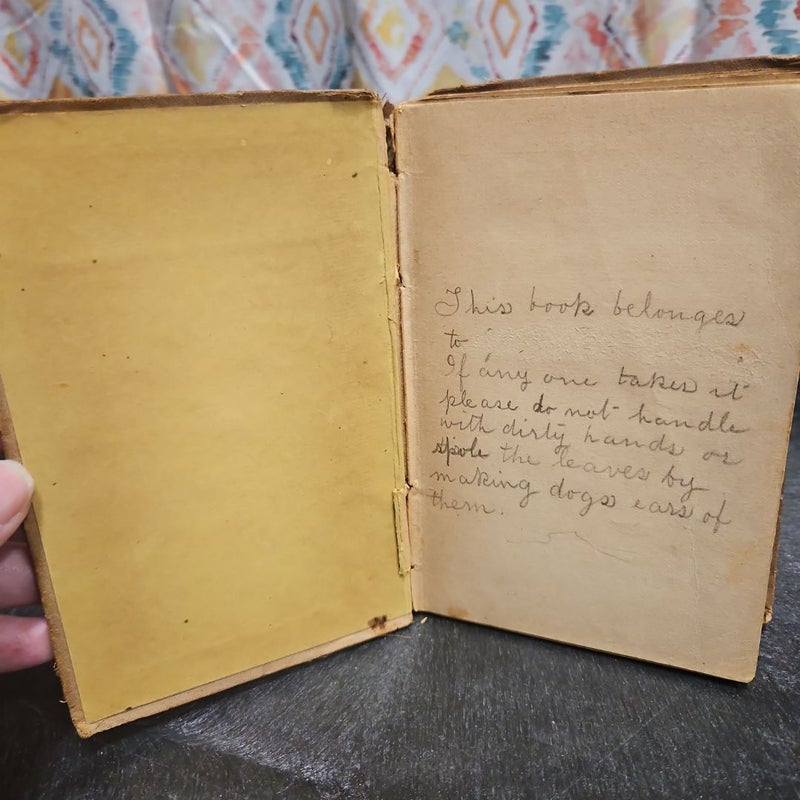 This book belonges
to
If any one takes it
please do not handle
with dirty hands or
spole the leaves by
making dogs ears of
them.